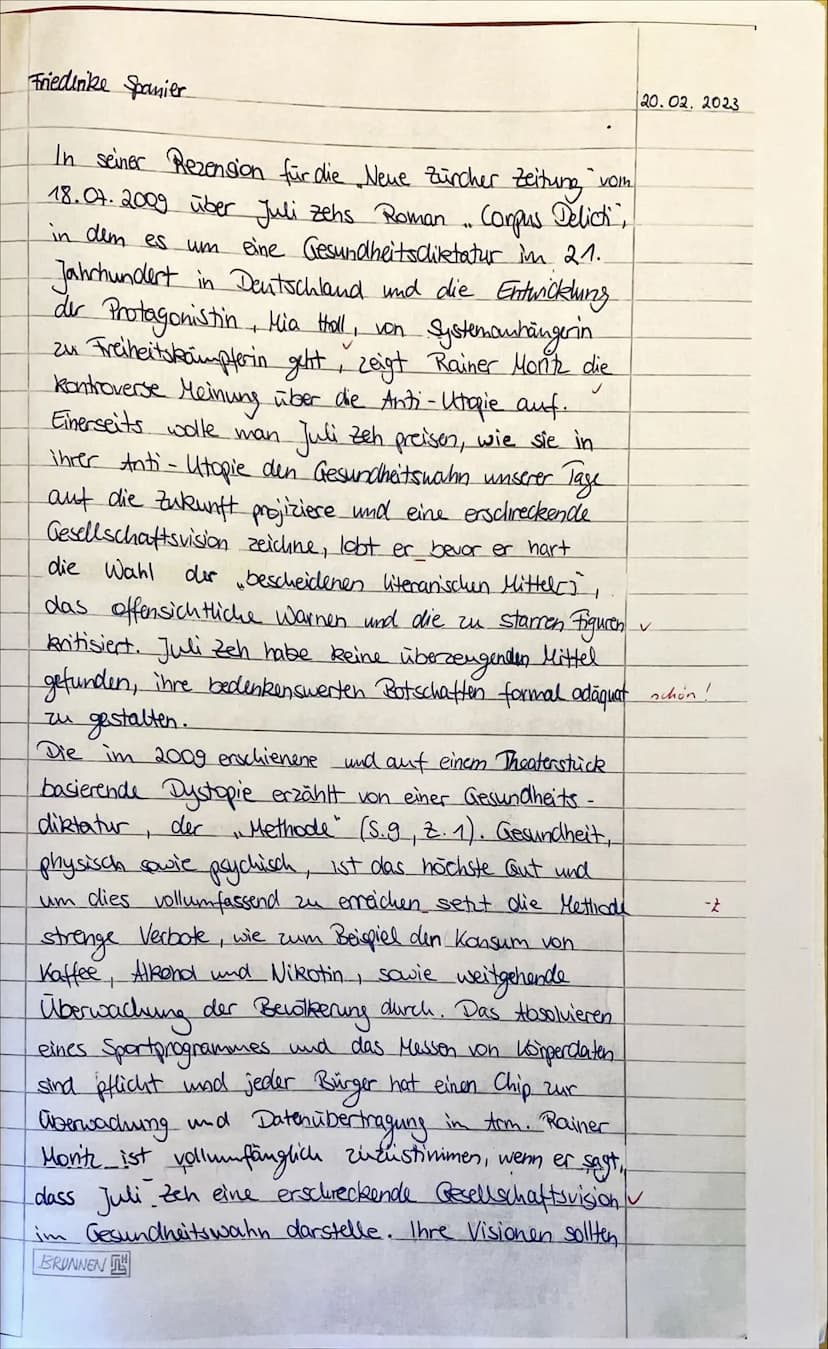 Friederike Spanier
20.02.2023
In seiner Rezension für die „Neue Zürcher Zeitung" vom
18.07.2009 über Juli Zehs Roman „Corpus Delicti",
in dem es um eine Gesundheitsdiktatur im 21.
Jahrhundert in Deutschland und die Entwicklung
der Protagonistin, Mia Holl, von Systemanhängerin
zu Freiheitskämpferin geht, zeigt Rainer Moritz die
kontroverse Meinung über die Anti-Utopie auf. ✓
Einerseits wolle man Juli Zeh preisen, wie sie in
ihrer Anti-Utopie den Gesundheitswahn unserer Tage
auf die Zukunft projiziere und eine erschreckende
Gesellschaftsvision zeichne, lobt er bevor er hart
die Wahl der „bescheidenen literarischen Mittel[]",
das offensichtliche Warnen und die zu starren Figuren ✓
kritisiert. Juli Zeh habe keine überzeugenden Mittel
gefunden, ihre bedenkenswerten Botschaften formal adäquat schön!
zu gestalten.
Die im 2009 erschienene und auf einem Theaterstück
basierende Dystopie erzählt von einer Gesundheits-
diktatur, der „Methode" (S.9, Z.1). Gesundheit,
physisch sowie psychisch, ist das höchste Gut und
um dies vollumfassend zu erreichen setzt die Methode -z
strenge Verbote, wie zum Beispiel den Konsum von
Kaffee, Alkohol und Nikotin, sowie weitgehende
Überwachung der Bevölkerung durch. Das Absolvieren
eines Sportprogrammes und das Messen von Körperdaten
sind pflicht und jeder Bürger hat einen Chip zur
Überwachung und Datenübertragung in Arm. Rainer
Moritz ist vollumfänglich zuzustimmen, wenn er sagt,
dass Juli Zeh eine erschreckende Gesellschaftsvision ✓
im Gesundheitswahn darstelle. Ihre Visionen sollten
BRUNNEN